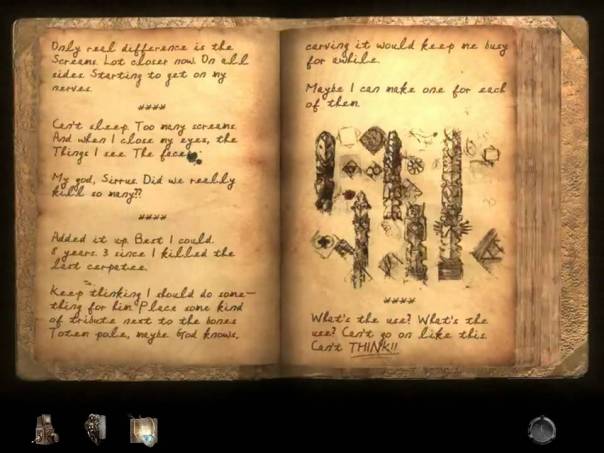 Only real difference is the
Screams. Lot closer now. On all
sides. Starting to get on my
nerves.
####
Can't sleep. Too many screams.
And when I close my eyes, the
Things I see. The faces.
My god, Sirrus. Did we really
kill so many??
####
Added it up. Best I could.
8 years. 3 since I killed the
last carpatee.
Keep thinking I should do some-
thing for him. Place some kind
of tribute next to the bones.
Totem pole, maybe. God knows,
carving it would keep me busy
for awhile.
Maybe I can make one for each
of them.
####
What's the use? What's the
use? Can't go on like this.
Can't THINK!!